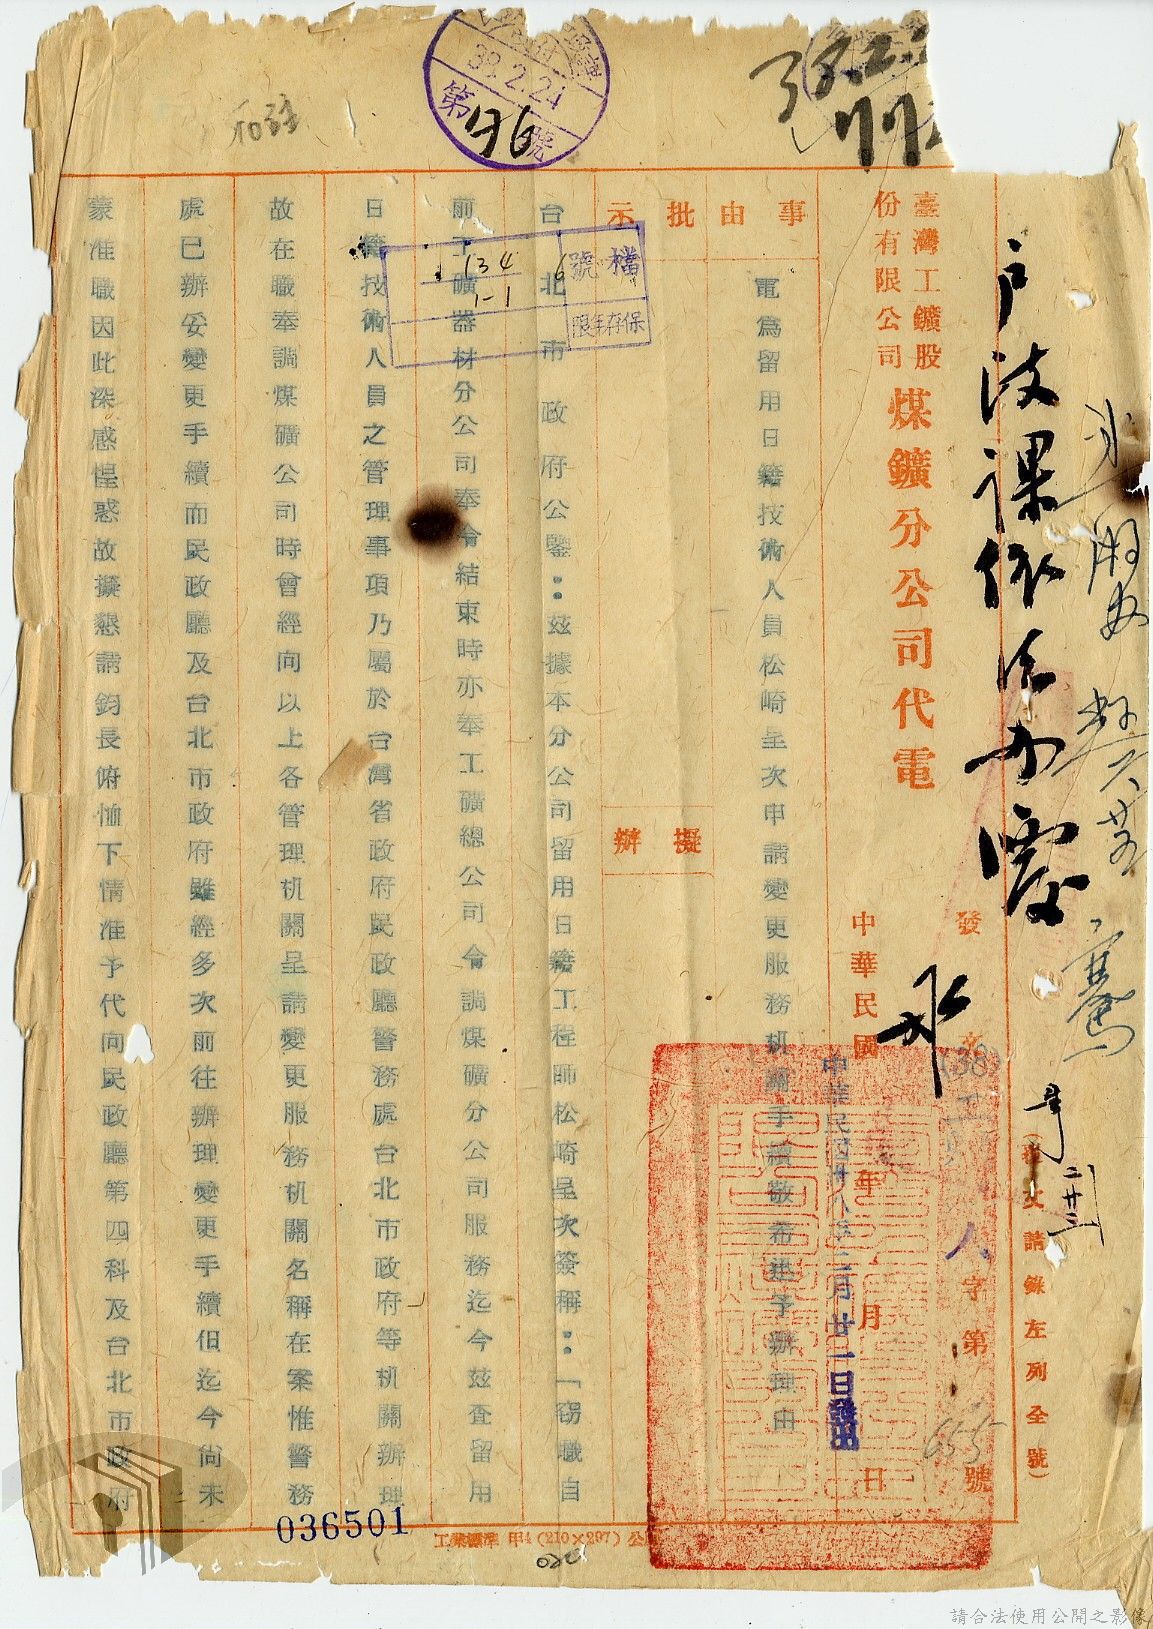 38.2.24
第46號
臺灣工鑛股
份有限公司
煤鑛分公司代電
戶政課依法办理
發文
(38)
人字第655號
(覆文請錄左列全號)
中華民國年月日
中華民國卅八年二月廿一日發出
事由
電為留用日籍技術人員松崎呈次申請變更服務机關手續敬希迅予辦理由
批示
擬辦
檔號
保存年限
134
1-1
6
台北市政府公鑒:茲據本分公司留用日籍工程師松崎呈次簽稱:「竊職自
前工礦器材分公司奉令結束時亦奉工礦總公司令調煤礦分公司服務迄今茲查留用
日籍技術人員之管理事項乃屬於台灣省政府民政廳警務處台北市政府等机關辦理
故在職奉調煤礦公司時曾經向以上各管理机關呈請變更服務机關名稱在案惟警務
處已辦妥變更手續而民政廳及台北市政府雖經多次前往辦理變更手續但迄今尚未
蒙准職因此深感惶惑故擬懇請鈞長俯恤下情准予代向民政廳第四科及台北市政府
036501
工業標準 甲4(210×297)公
請合法使用公開之影像